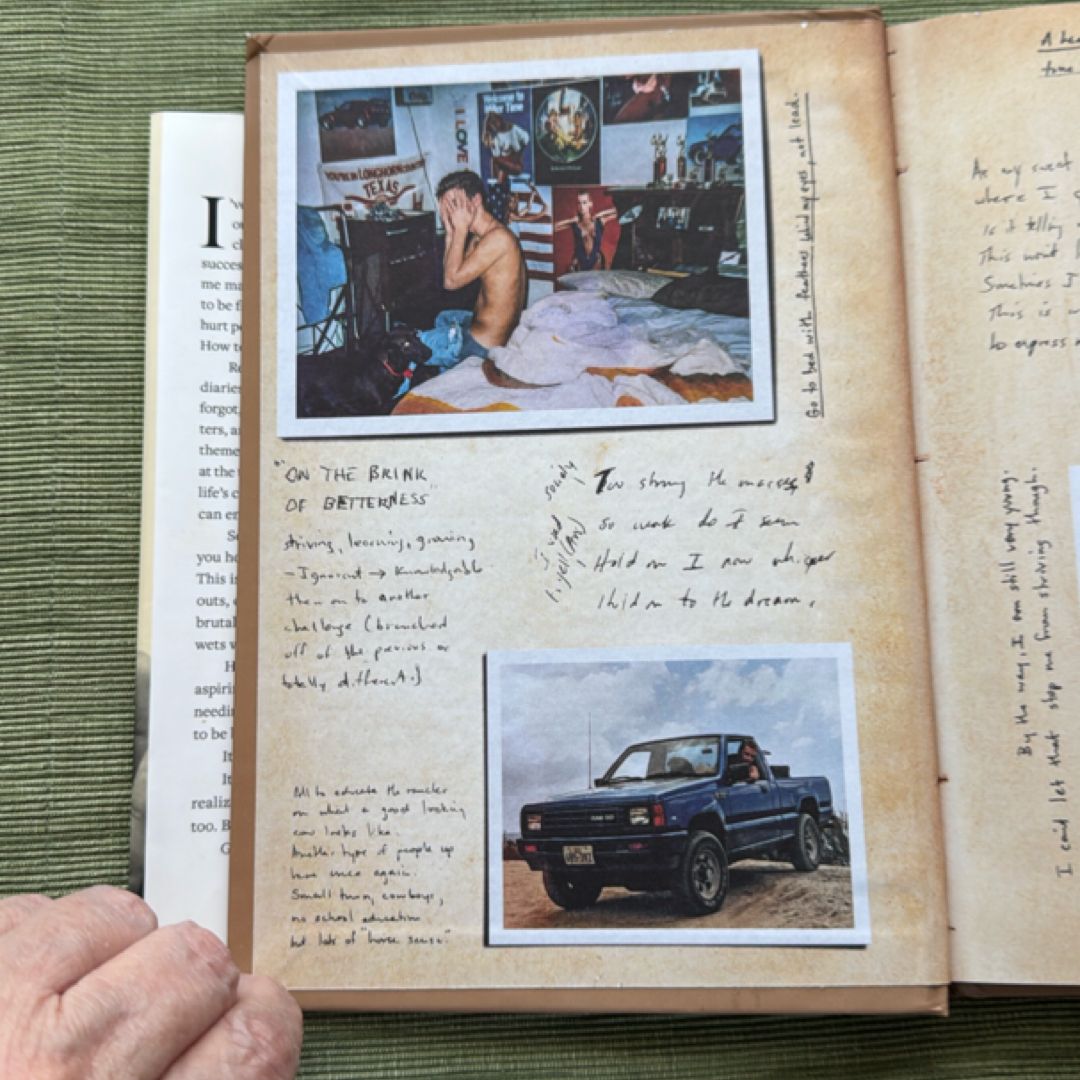 I've
succes
me ma
to be f
hurt p
How to
Re
diaries
forgot,
ters, a
theme
at the
life's c
can er
So
you he
This i
outs,
brutal
wets w
H
aspiri
needi
to be
It
It
realiz
too. B
G
I LOVE
YOU'RE IN LONGHORN COUNTRY
TEXAS
Go to bed with feathers behind my eyes, not lead.
"ON THE BRINK
OF BETTERNESS"
striving, learning, growing
- Ignorant → Knowledgable
then on to another
challenge (branched
off of the previous or
totally different.)
Too strong the
so weak do I seem
Hold on I now whisper
Hold on to the dream.
I, yell (AM)
All to educate the rancher
on what a good looking
cow looks like.
Another type of people up
here once again.
Small town, cowboys,
no school education
but lots of "horse sense."
time
As my sweat
where I
is it telling
This won't
Sometimes I
This is
to express
By the way, I am still very young.
I can't let that stop me from striving though.